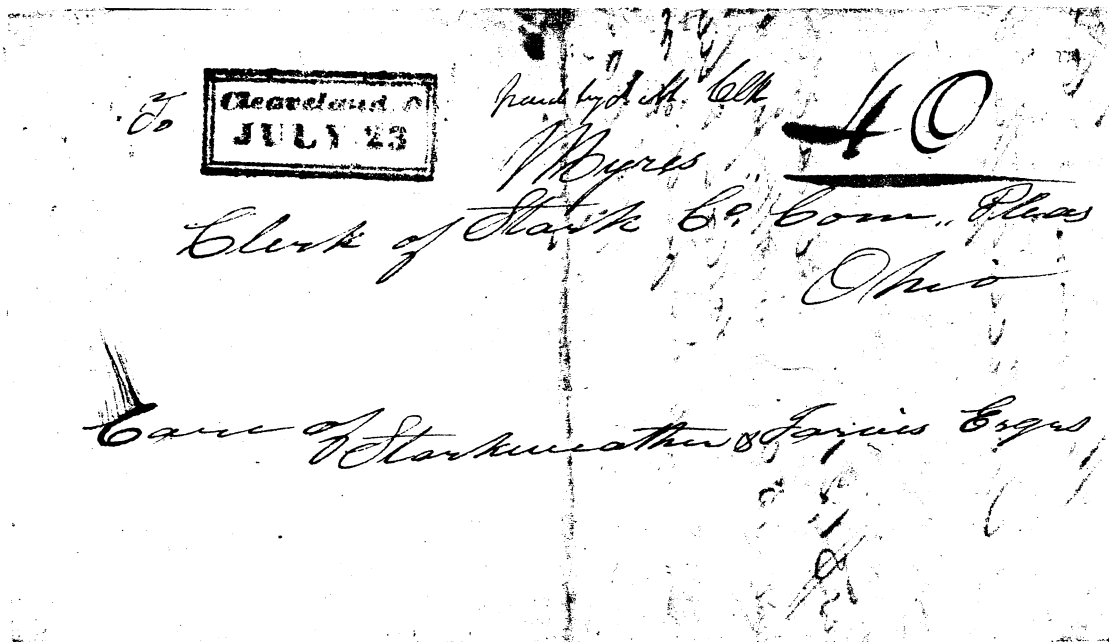 To
Cleaveland O
JULY 23
paid by J. M. Clk
40
Myres
Clerk of Stark Co. Com.. Pleas
Ohio
Care of Starkweather & Jarvis Esqrs